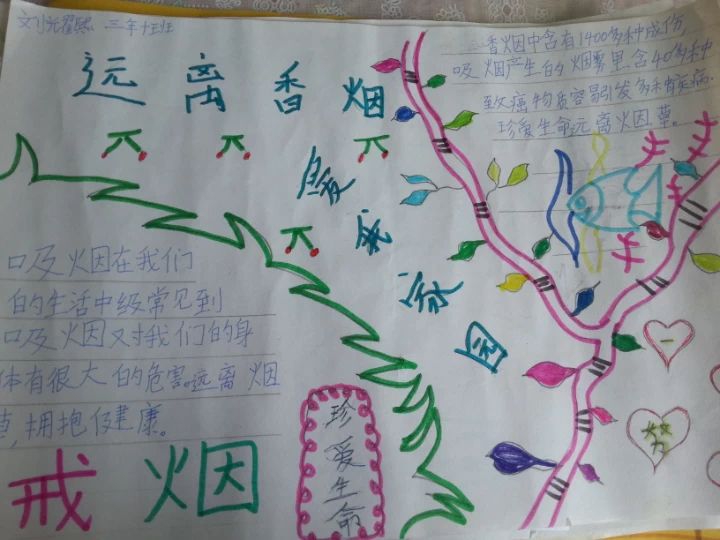 三年十班
远离香烟
爱我家园
香烟中含有1400多种成份,
吸烟产生的烟雾里含40多种
致癌物质容易引发多种疾病.
珍爱生命远离烟草。
吸烟在我们
的生活中级常见到
吸烟对我们的身
体有很大的危害。远离烟
草,拥抱健康。
戒烟
珍爱生命
一